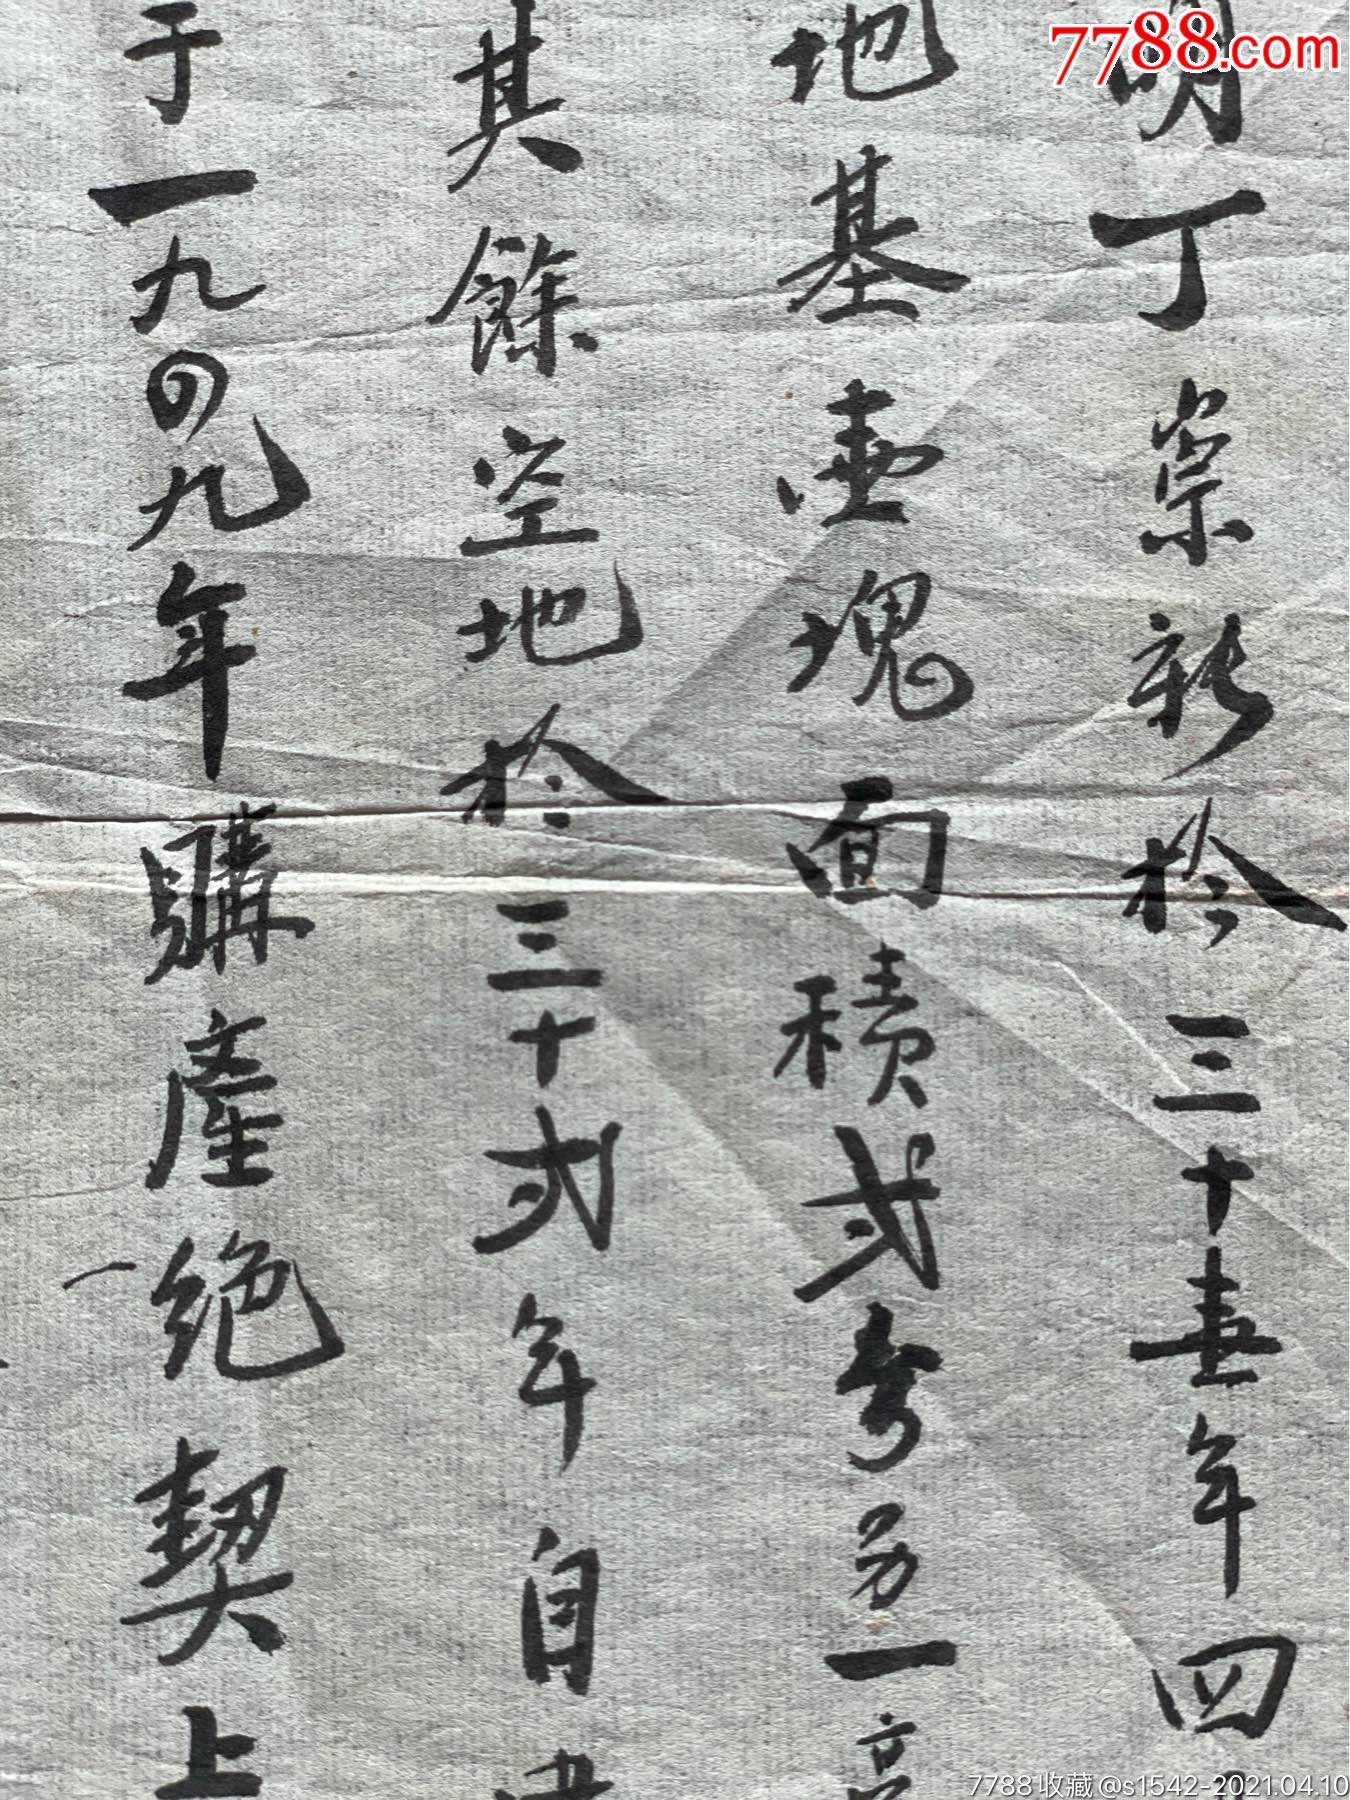 7788.com
明丁崇新於三十壹年四
地基壹塊面積弍分一
其餘空地於三十弍年自
于一九四九年購產絕契上
7788收藏@s1542-2021.04.10